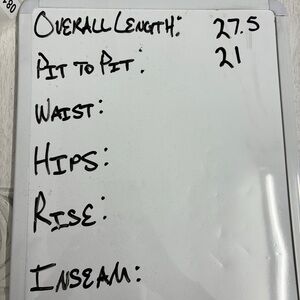 OVERALL LENGTH: 27.5
PIT TO PIT: 21
WAIST:
HIPS:
RISE:
INSEAM: